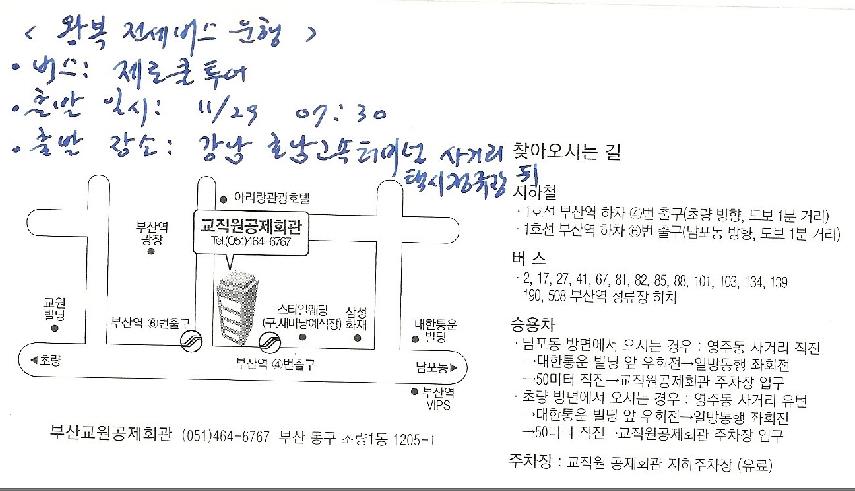 < 왕복 전세버스 운행 >
• 버스: 제로쿨투어
• 출발 일시: 11/29 07:30
• 출발 장소: 강남 호남고속터미널 사거리
택시정류장 뒤
찾아오시는 길
지하철
· 1호선 부산역 하차 ④번 출구(초량 방향, 도보 1분 거리)
· 1호선 부산역 하차 ⑥번 출구(남포동 방향, 도보 1분 거리)
버 스
· 2, 17, 27, 41, 67, 81, 82, 85, 88, 101, 103, 134, 139
190, 508 부산역 정류장 하차
승용차
· 남포동 방면에서 오시는 경우 : 영주동 사거리 직진
→대한통운 빌딩 앞 우회전→일방통행 좌회전
→50미터 직진→교직원공제회관 주차장 입구
· 초량 방면에서 오시는 경우 : 영주동 사거리 유턴
→대한통운 빌딩 앞 우회전→일방통행 좌회전
→50미터 직진→교직원공제회관 주차장 입구
주차장 : 교직원 공제회관 지하주차장 (유료)
아리랑관광호텔
부산역
광장
교직원공제회관
Tel.(051)464-6767
교원
빌딩
부산역 ⑥번출구
스타일웨딩
(구.새마남예식장)
삼성
화재
대한통운
빌딩
◀초량
부산역 ④번출구
남포동▶
부산역
VIPS
부산교원공제회관 (051)464-6767 부산 동구 초량1동 1205-1